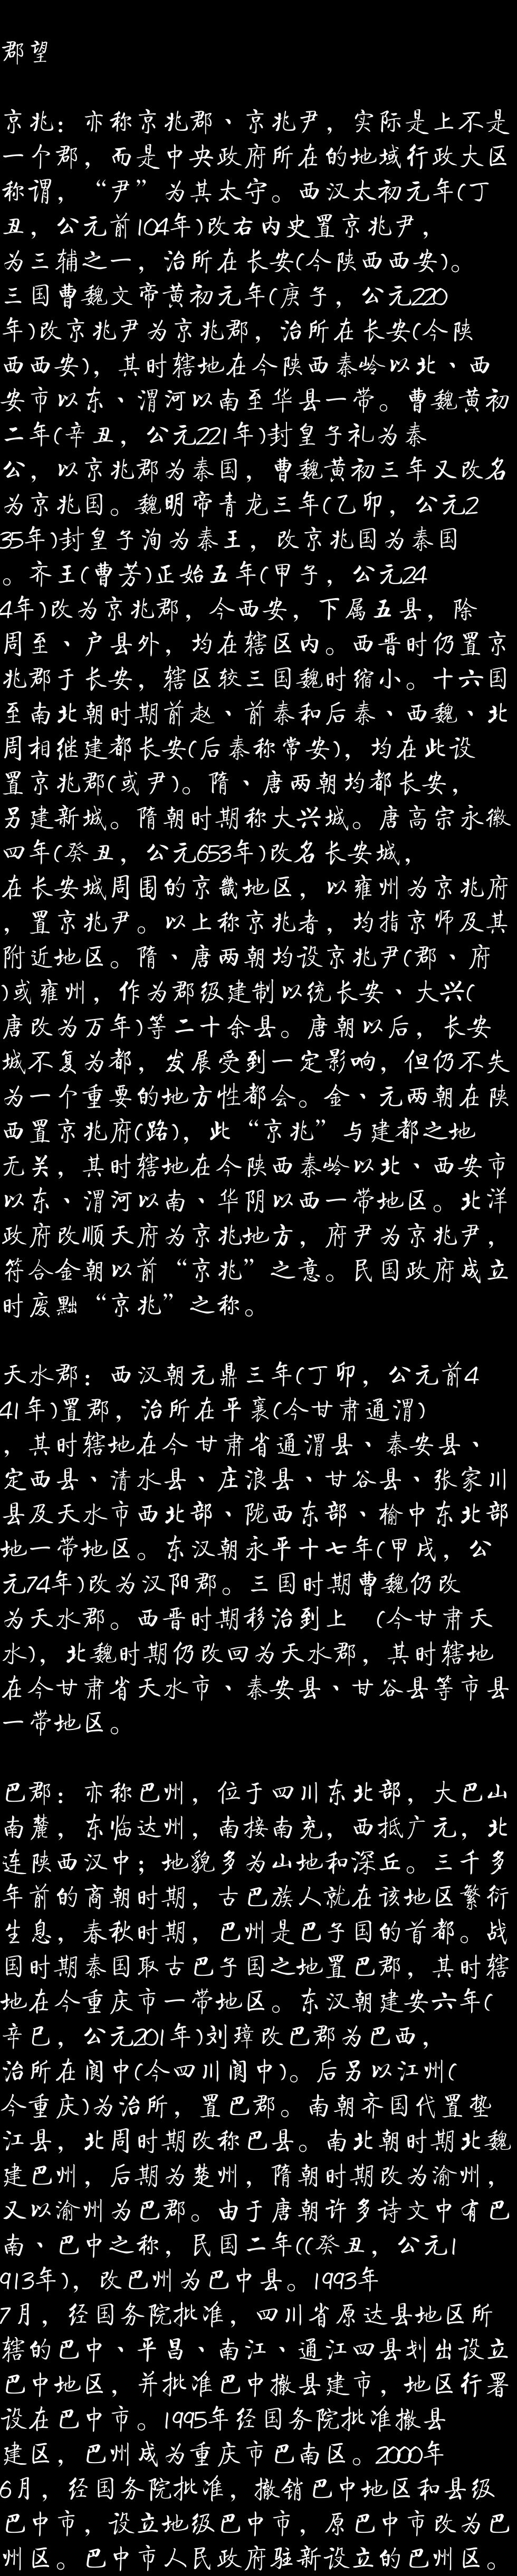 郡望
京兆：亦称京兆郡、京兆尹，实际是上不是
一个郡，而是中央政府所在的地域行政大区
称谓，“尹”为其太守。西汉太初元年(丁
丑，公元前104年)改右内史置京兆尹，
为三辅之一，治所在长安(今陕西西安)。
三国曹魏文帝黄初元年(庚子，公元220
年)改京兆尹为京兆郡，治所在长安(今陕
西西安)，其时辖地在今陕西秦岭以北、西
安市以东、渭河以南至华县一带。曹魏黄初
二年(辛丑，公元221年)封皇子礼为秦
公，以京兆郡为秦国，曹魏黄初三年又改名
为京兆国。魏明帝青龙三年(乙卯，公元2
35年)封皇子洵为秦王，改京兆国为秦国
。齐王(曹芳)正始五年(甲子，公元24
4年)改为京兆郡，今西安，下属五县，除
周至、户县外，均在辖区内。西晋时仍置京
兆郡于长安，辖区较三国魏时缩小。十六国
至南北朝时期前赵、前秦和后秦、西魏、北
周相继建都长安(后秦称常安)，均在此设
置京兆郡(或尹)。隋、唐两朝均都长安，
另建新城。隋朝时期称大兴城。唐高宗永徽
四年(癸丑，公元653年)改名长安城，
在长安城周围的京畿地区，以雍州为京兆府
，置京兆尹。以上称京兆者，均指京师及其
附近地区。隋、唐两朝均设京兆尹(郡、府
)或雍州，作为郡级建制以统长安、大兴(
唐改为万年)等二十余县。唐朝以后，长安
城不复为都，发展受到一定影响，但仍不失
为一个重要的地方性都会。金、元两朝在陕
西置京兆府(路)，此“京兆”与建都之地
无关，其时辖地在今陕西秦岭以北、西安市
以东、渭河以南、华阴以西一带地区。北洋
政府改顺天府为京兆地方，府尹为京兆尹，
符合金朝以前“京兆”之意。民国政府成立
时废黜“京兆”之称。
天水郡：西汉朝元鼎三年(丁卯，公元前4
41年)置郡，治所在平襄(今甘肃通渭)
，其时辖地在今甘肃省通渭县、秦安县、
定西县、清水县、庄浪县、甘谷县、张家川
县及天水市西北部、陇西东部、榆中东北部
地一带地区。东汉朝永平十七年(甲戌，公
元74年)改为汉阳郡。三国时期曹魏仍改
为天水郡。西晋时期移治到上　(今甘肃天
水)，北魏时期仍改回为天水郡，其时辖地
在今甘肃省天水市、秦安县、甘谷县等市县
一带地区。
巴郡：亦称巴州，位于四川东北部，大巴山
南麓，东临达州，南接南充，西抵广元，北
连陕西汉中；地貌多为山地和深丘。三千多
年前的商朝时期，古巴族人就在该地区繁衍
生息，春秋时期，巴州是巴子国的首都。战
国时期秦国取古巴子国之地置巴郡，其时辖
地在今重庆市一带地区。东汉朝建安六年(
辛巳，公元201年)刘璋改巴郡为巴西，
治所在阆中(今四川阆中)。后另以江州(
今重庆)为治所，置巴郡。南朝齐国代置垫
江县，北周时期改称巴县。南北朝时期北魏
建巴州，后期为楚州，隋朝时期改为渝州，
又以渝州为巴郡。由于唐朝许多诗文中有巴
南、巴中之称，民国二年((癸丑，公元1
913年)，改巴州为巴中县。1993年
7月，经国务院批准，四川省原达县地区所
辖的巴中、平昌、南江、通江四县划出设立
巴中地区，并批准巴中撤县建市，地区行署
设在巴中市。1995年经国务院批准撤县
建区，巴州成为重庆市巴南区。2000年
6月，经国务院批准，撤销巴中地区和县级
巴中市，设立地级巴中市，原巴中市改为巴
州区。巴中市人民政府驻新设立的巴州区。